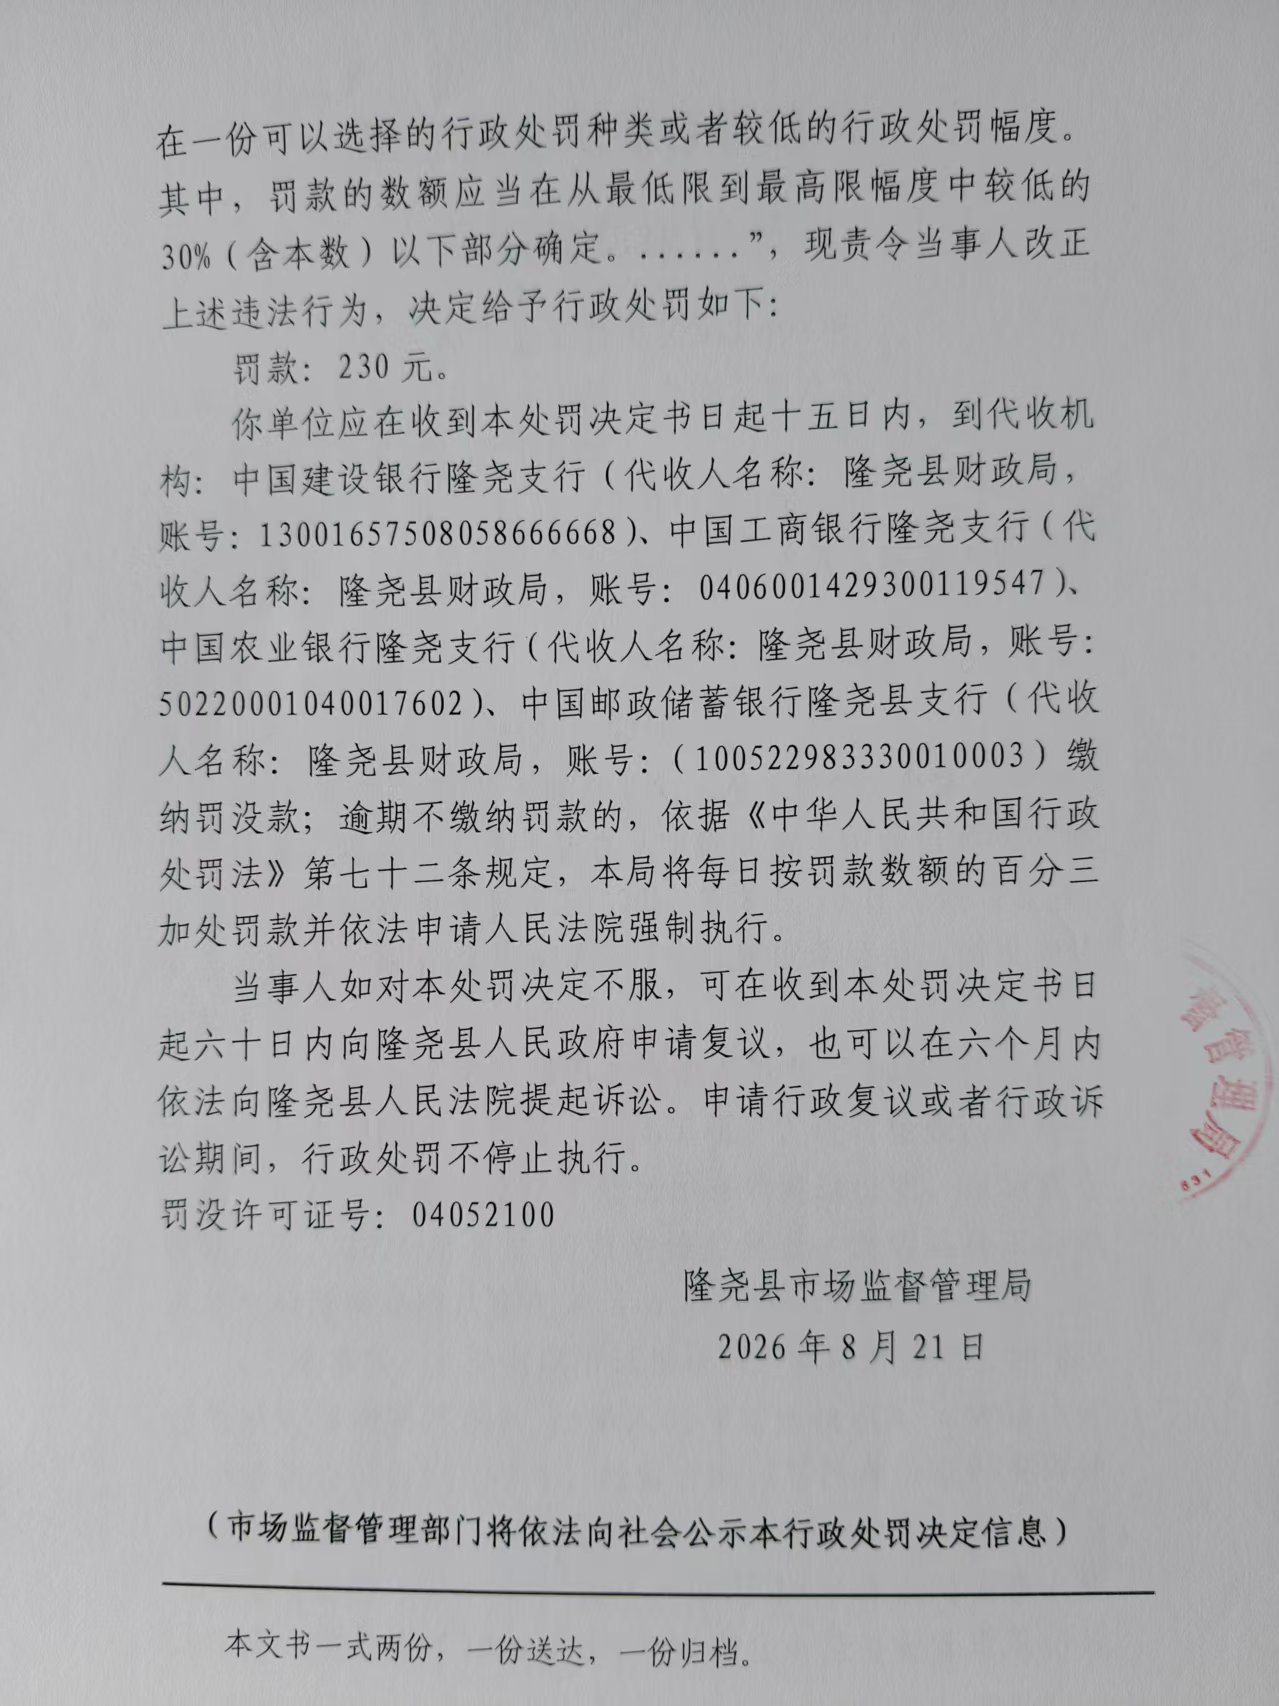 在一份可以选择的行政处罚种类或者较低的行政处罚幅度。
其中，罚款的数额应当在从最低限到最高限幅度中较低的
30%（含本数）以下部分确定。......”，现责令当事人改正
上述违法行为，决定给予行政处罚如下：
罚款：230 元。
你单位应在收到本处罚决定书日起十五日内，到代收机
构：中国建设银行隆尧支行（代收人名称：隆尧县财政局，
账号：13001657508058666668）、中国工商银行隆尧支行（代
收人名称：隆尧县财政局，账号：0406001429300119547）、
中国农业银行隆尧支行（代收人名称：隆尧县财政局，账号：
50220001040017602）、中国邮政储蓄银行隆尧县支行（代收
人名称：隆尧县财政局，账号：（100522983330010003）缴
纳罚没款；逾期不缴纳罚款的，依据《中华人民共和国行政
处罚法》第七十二条规定，本局将每日按罚款数额的百分三
加处罚款并依法申请人民法院强制执行。
当事人如对本处罚决定不服，可在收到本处罚决定书日
起六十日内向隆尧县人民政府申请复议，也可以在六个月内
依法向隆尧县人民法院提起诉讼。申请行政复议或者行政诉
讼期间，行政处罚不停止执行。
罚没许可证号：04052100
隆尧县市场监督管理局
2026 年 8 月 21 日
（市场监督管理部门将依法向社会公示本行政处罚决定信息）
本文书一式两份，一份送达，一份归档。
管理局
631